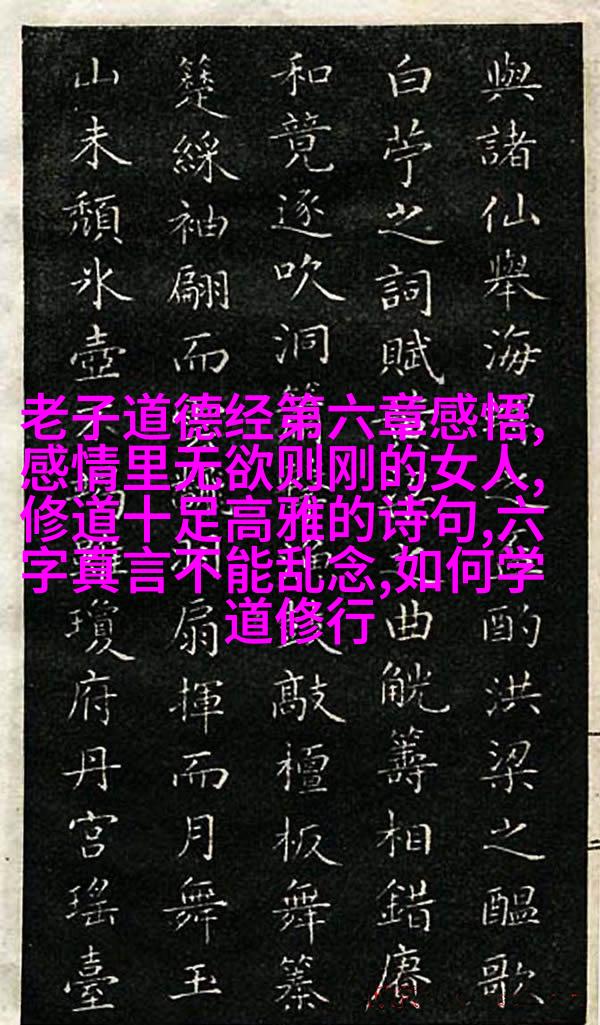 老子道德经第六章感悟,
感情里无欲则刚的女人,
修道十足高雅的诗句,六
字真言不能乱念,如何学
道修行
與諸仙舉海之酌洪梁之醞歌
白苧之詞賦之曲觥籌相錯賡
和竟逐吹洞敲檀板舞
綵袖翩而扇揮而月舞玉
山未頹氷壺瓊府丹宮瑤臺